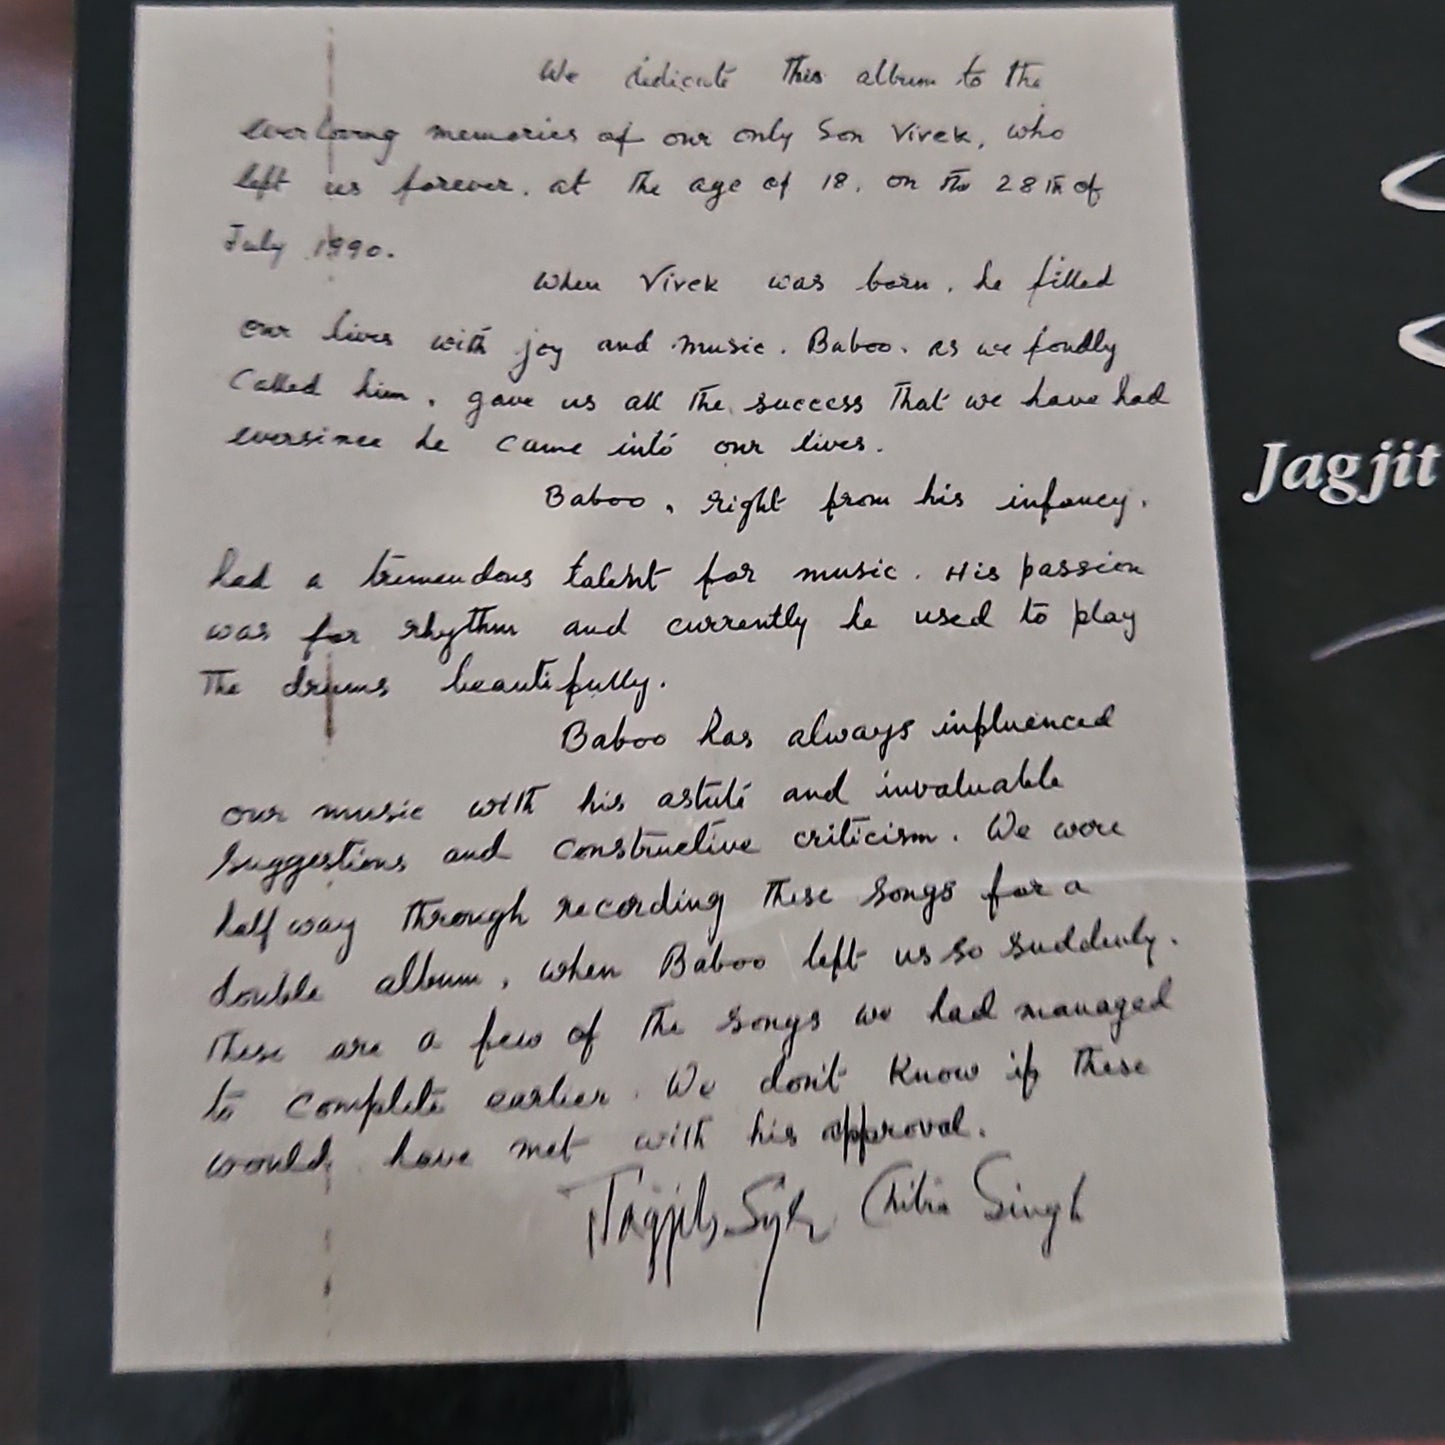 We dedicate This album to the
everloving memories of our only Son Vivek, who
left us forever, at the age of 18, on the 28th of
July 1990.
When Vivek was born, he filled
our lives with joy and music. Baboo, as we fondly
Called him, gave us all the success That we have had
eversince he came into our lives.
Baboo, right from his infancy,
had a tremendous talent for music. His passion
was for rhythm and currently he used to play
The drums beautifully.
Baboo has always influenced
our music with his astute and invaluable
suggestions and constructive criticism. We were
half way through recording these songs for a
double album, when Baboo left us so suddenly.
These are a few of the songs we had managed
to complete earlier. We don't know if these
would have met with his approval.
Jagjit Singh Chitra Singh
Jagjit